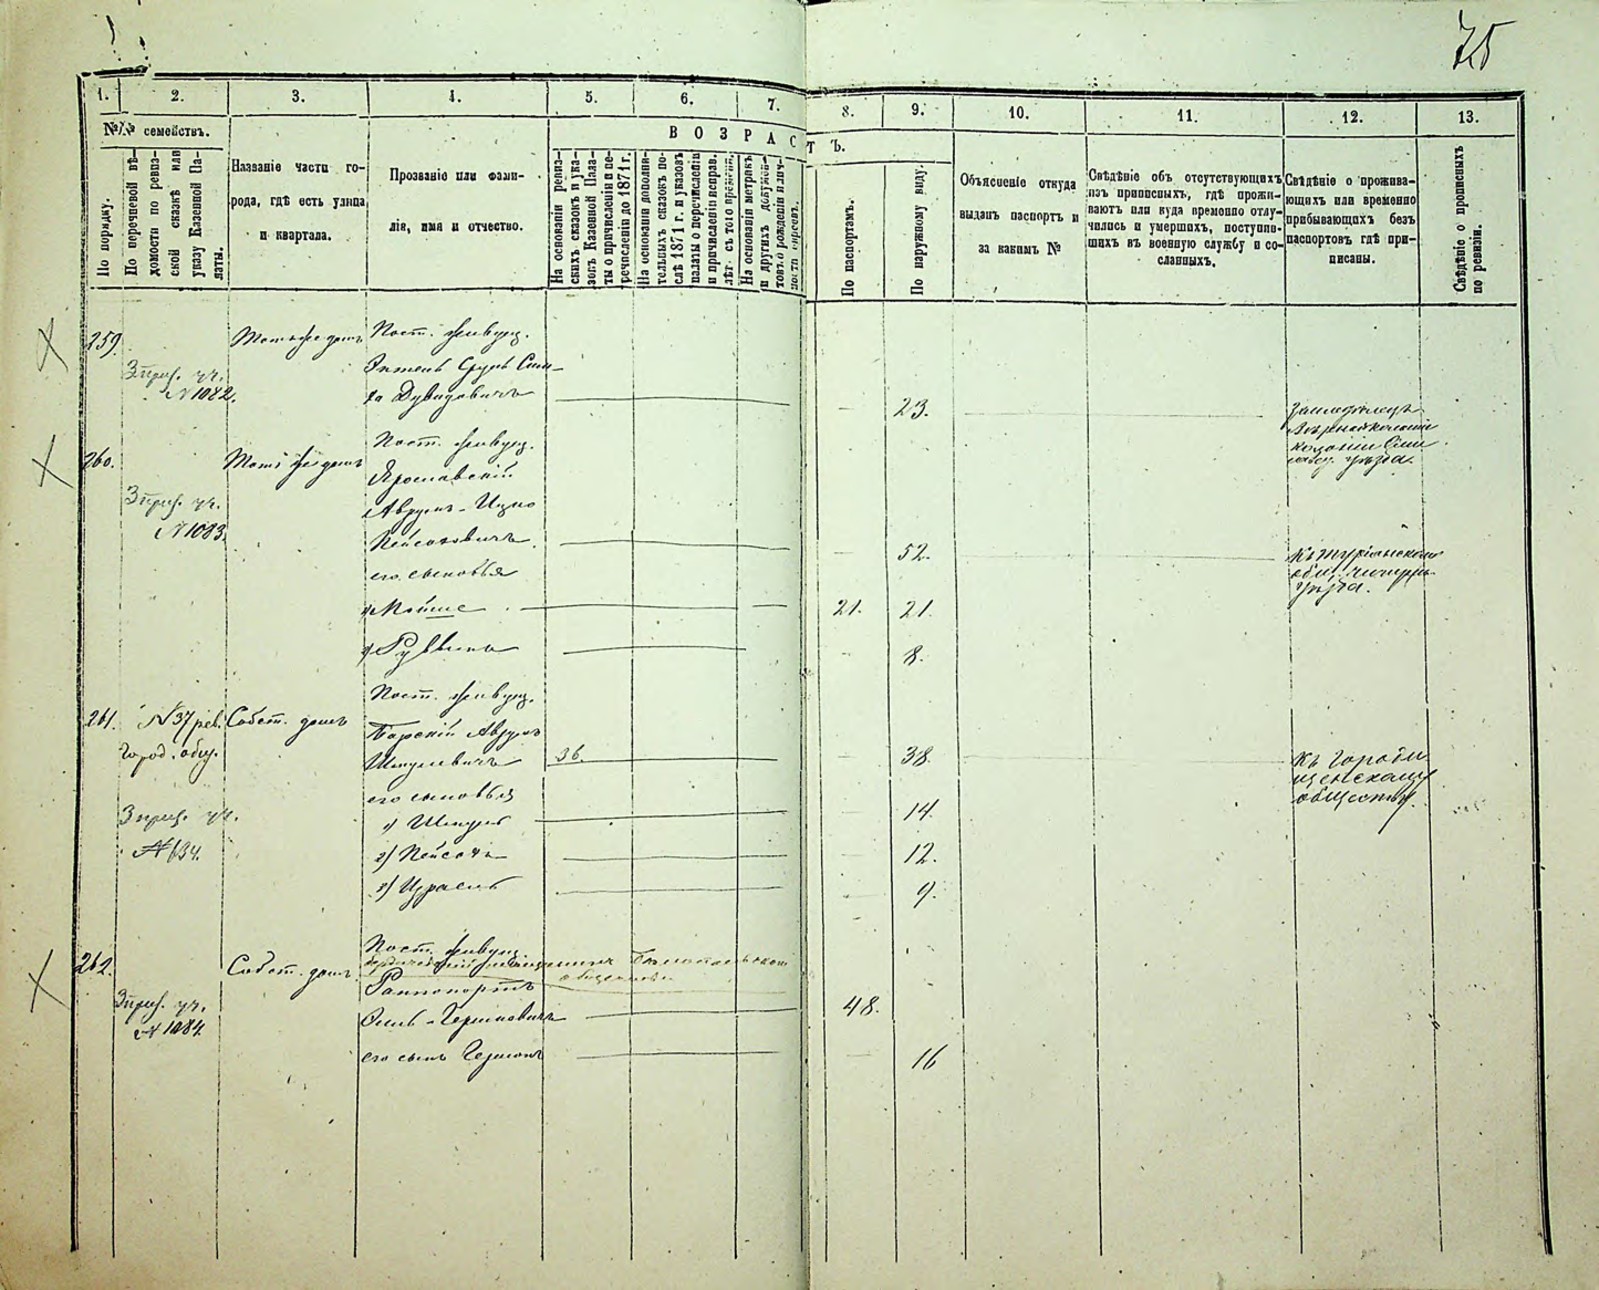 75
1. 2. 3. 4. 5. 6. 7. 8. 9. 10. 11. 12. 13.
№№ семействъ.
ВОЗРАСТЪ.
По порядку.
По перечневой вѣ-
домости по ревиз-
ской сказкѣ или
указу Казенной Па-
латы.
Названіе части го-
рода, гдѣ есть улица
и квартала.
Прозваніе или фами-
лія, имя и отчество.
На основаніи ревиз-
скихъ сказокъ и ука-
зовъ Казенной Пала-
ты о причисленіи и пе-
речисленіи до 1871 г.
На основаніи дополни-
тельныхъ сказокъ по-
слѣ 1871 г. и указовъ
палаты о перечисленіи
и причисленіи исправ.
лѣт. съ того времени.
На основаніи метрикъ
и другихъ докумен-
товъ о рожденіи и лич-
ности евреевъ.
По паспортамъ.
По наружному виду.
Объясненіе откуда
выданъ паспортъ и
за какимъ №
Свѣдѣніе объ отсутствующихъ
изъ приписныхъ, гдѣ прожи-
ваютъ или куда временно отлу-
чились и умершихъ, поступив-
шихъ въ военную службу и со-
сланныхъ.
Свѣдѣніе о прожива-
ющихъ или временно
прибывающихъ безъ
паспортовъ гдѣ при-
писаны.
Свѣдѣніе о прописныхъ
по ревизіи.
259. Тотъ же домъ Пост. живущ.
3 приз. уч.
№ 1082.
Дувидовичъ 23.
260. Тотъ же домъ Пост. живущ.
Ярославскій
3 приз. уч.
№ 1083.
Аврумъ-Ицко
Пейсаховичъ 52.
его сыновья
1) Мойше 21. 21.
2) Руввинъ 8.
Пост. живущ.
261. № 37 рев. Собст. домъ
Барскій Аврумъ
Город. общ.
Шмулевичъ 36. 38. Къ Городи-
щенскому
обществу.
его сыновья
3 приз. уч.
№ 634.
1) Шмуль 14.
2) Пейсахъ 12.
3) Израель 9.
262. Собст. домъ Пост. живущ.
Раппопортъ
3 приз. уч.
№ 1084.
48.
его сынъ Гершонъ 16